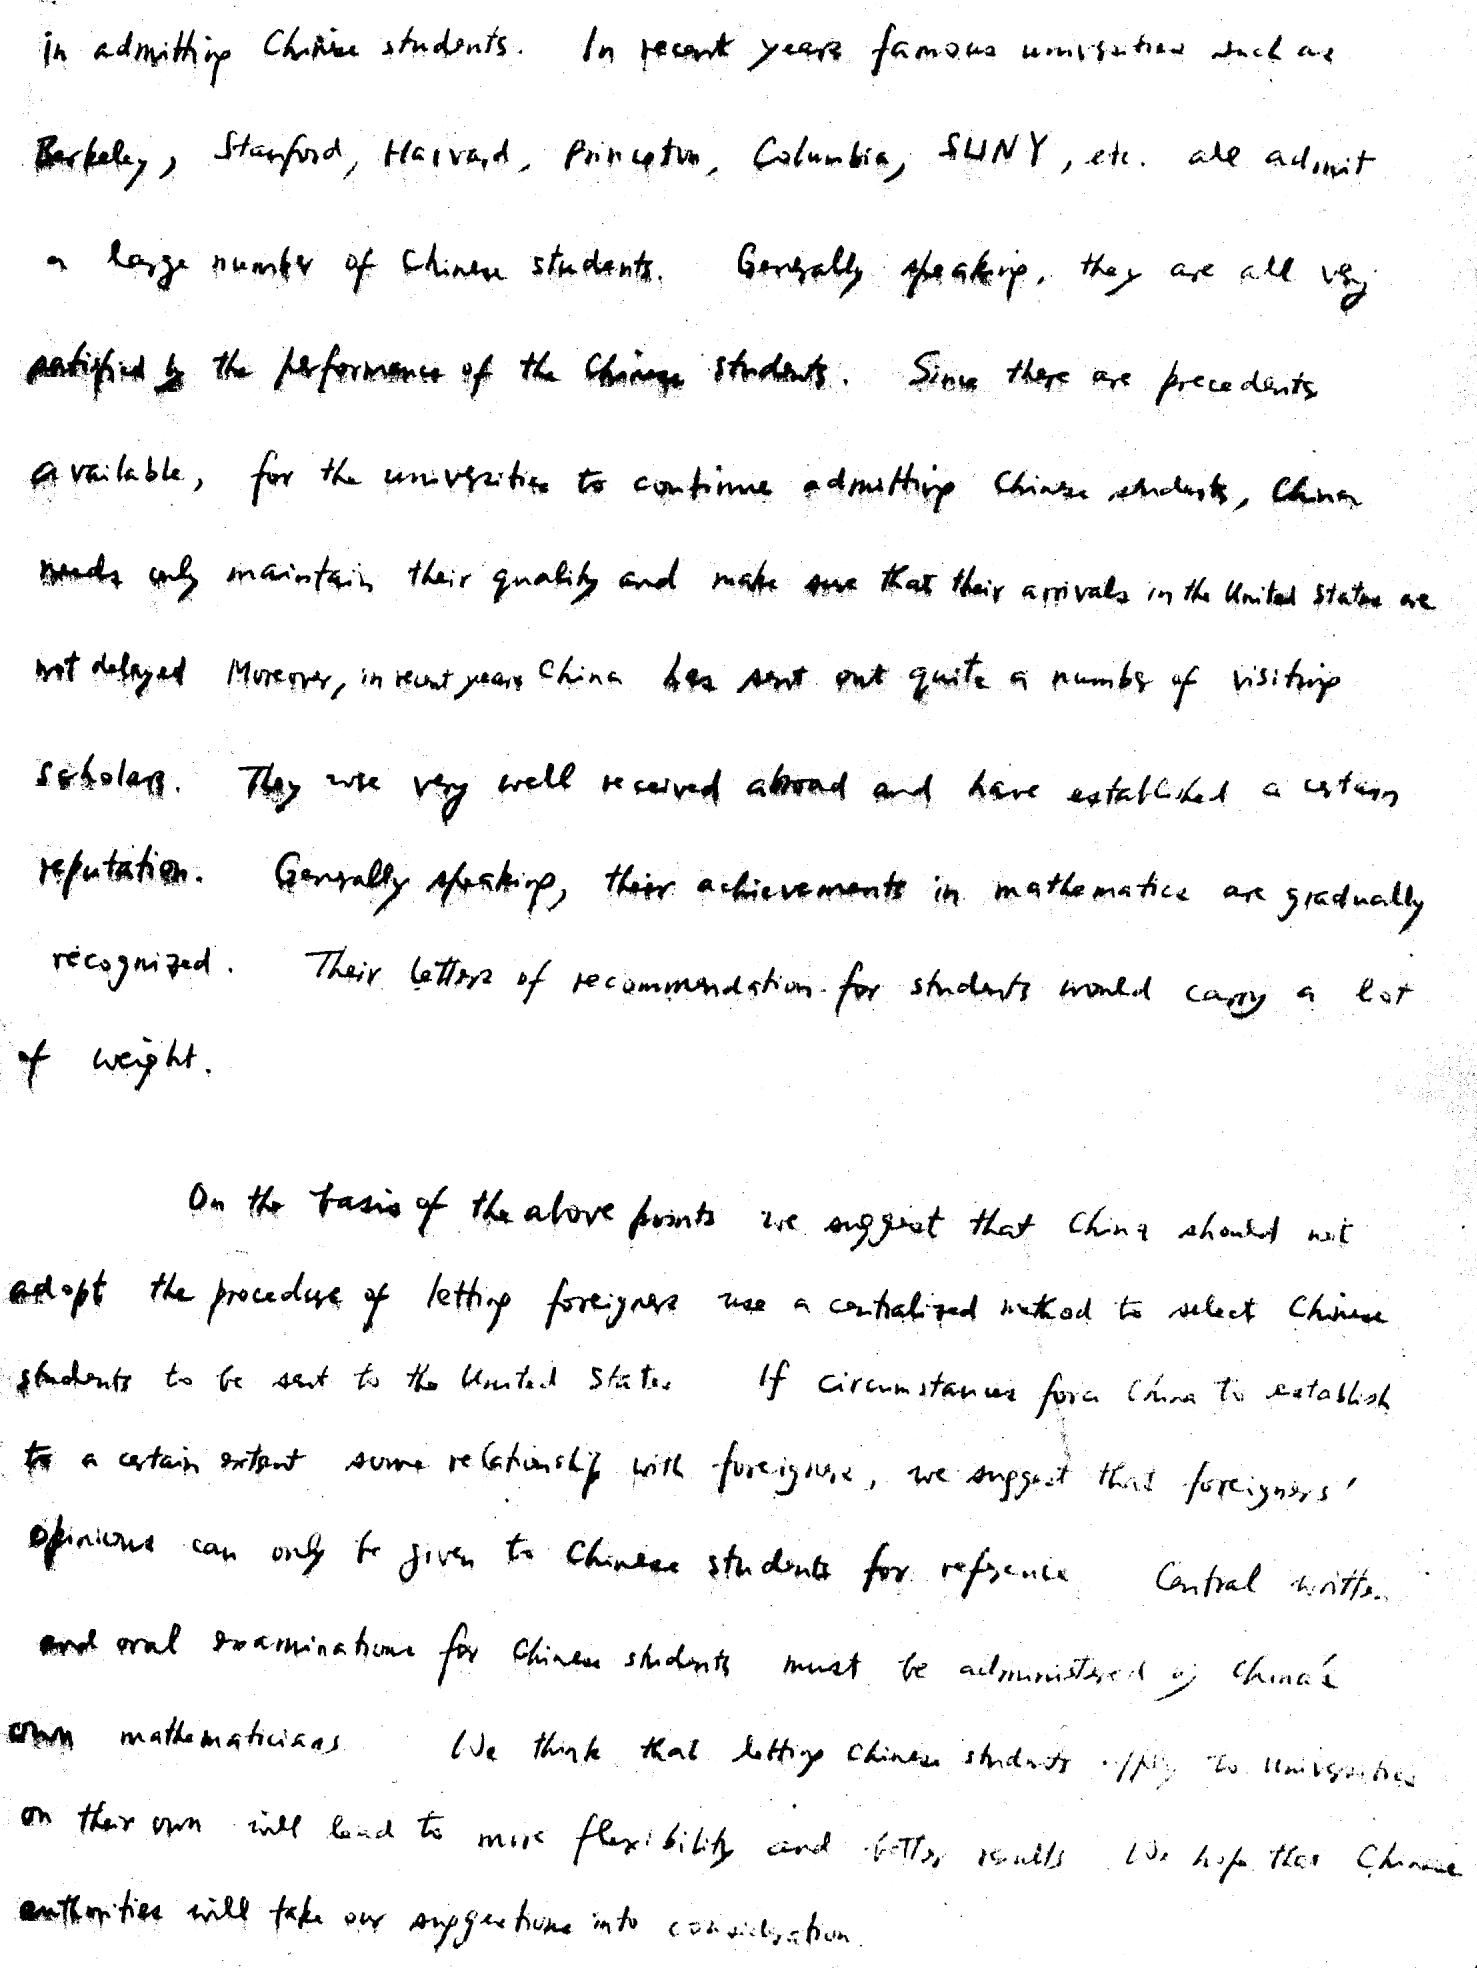 in admitting Chinese students. In recent years famous universities such as
Berkeley, Stanford, Harvard, Princeton, Columbia, SUNY, etc. all admit
a large number of Chinese students. Generally speaking, they are all very
satisfied by the performance of the Chinese students. Since there are precedents
available, for the universities to continue admitting Chinese students, China
needs only maintain their quality and make sure that their arrivals in the United States are
not delayed Moreover, in recent years China has sent out quite a number of visiting
scholars. They were very well received abroad and have established a certain
reputation. Generally speaking, their achievements in mathematics are gradually
recognized. Their letters of recommendation for students would carry a lot
of weight.
On the basis of the above points we suggest that China should not
adopt the procedure of letting foreigners use a centralized method to select Chinese
students to be sent to the United States If circumstances force China to establish
to a certain extent some relationship with foreigners, we suggest that foreigners'
opinions can only be given to Chinese students for reference Central written
and oral examinations for Chinese students must be administered by China's
own mathematicians We think that letting Chinese students apply to universities
on their own will lead to more flexibility and better results We hope that Chinese
authorities will take our suggestions into consideration.